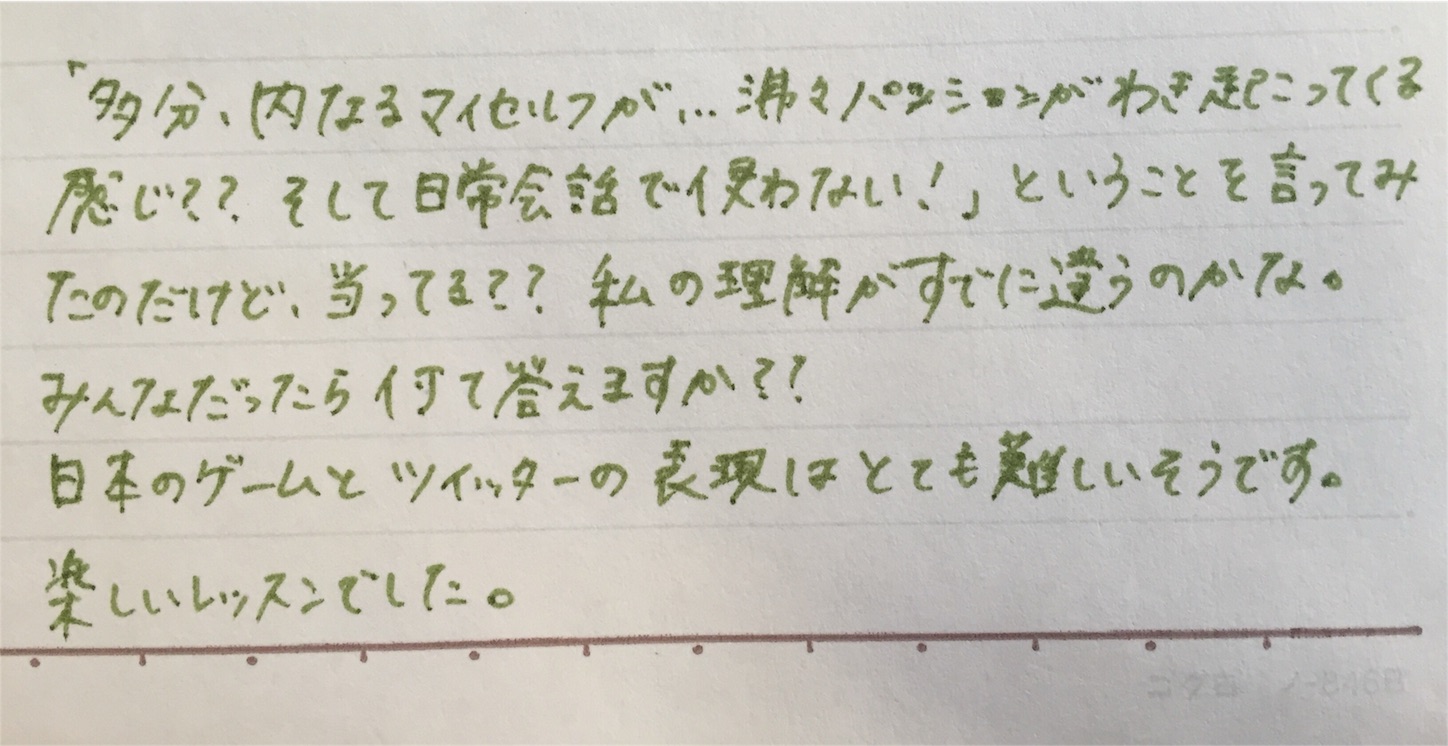 「多分、内なるマイセルフが…沸々パッションがわき起こってくる
感じ?? そして日常会話で使わない!」ということを言ってみ
たのだけど、当ってる?? 私の理解がすでに違うのかな。
みんなだったら何て答えますか??
日本のゲームとツイッターの表現はとても難しいそうです。
楽しいレッスンでした。